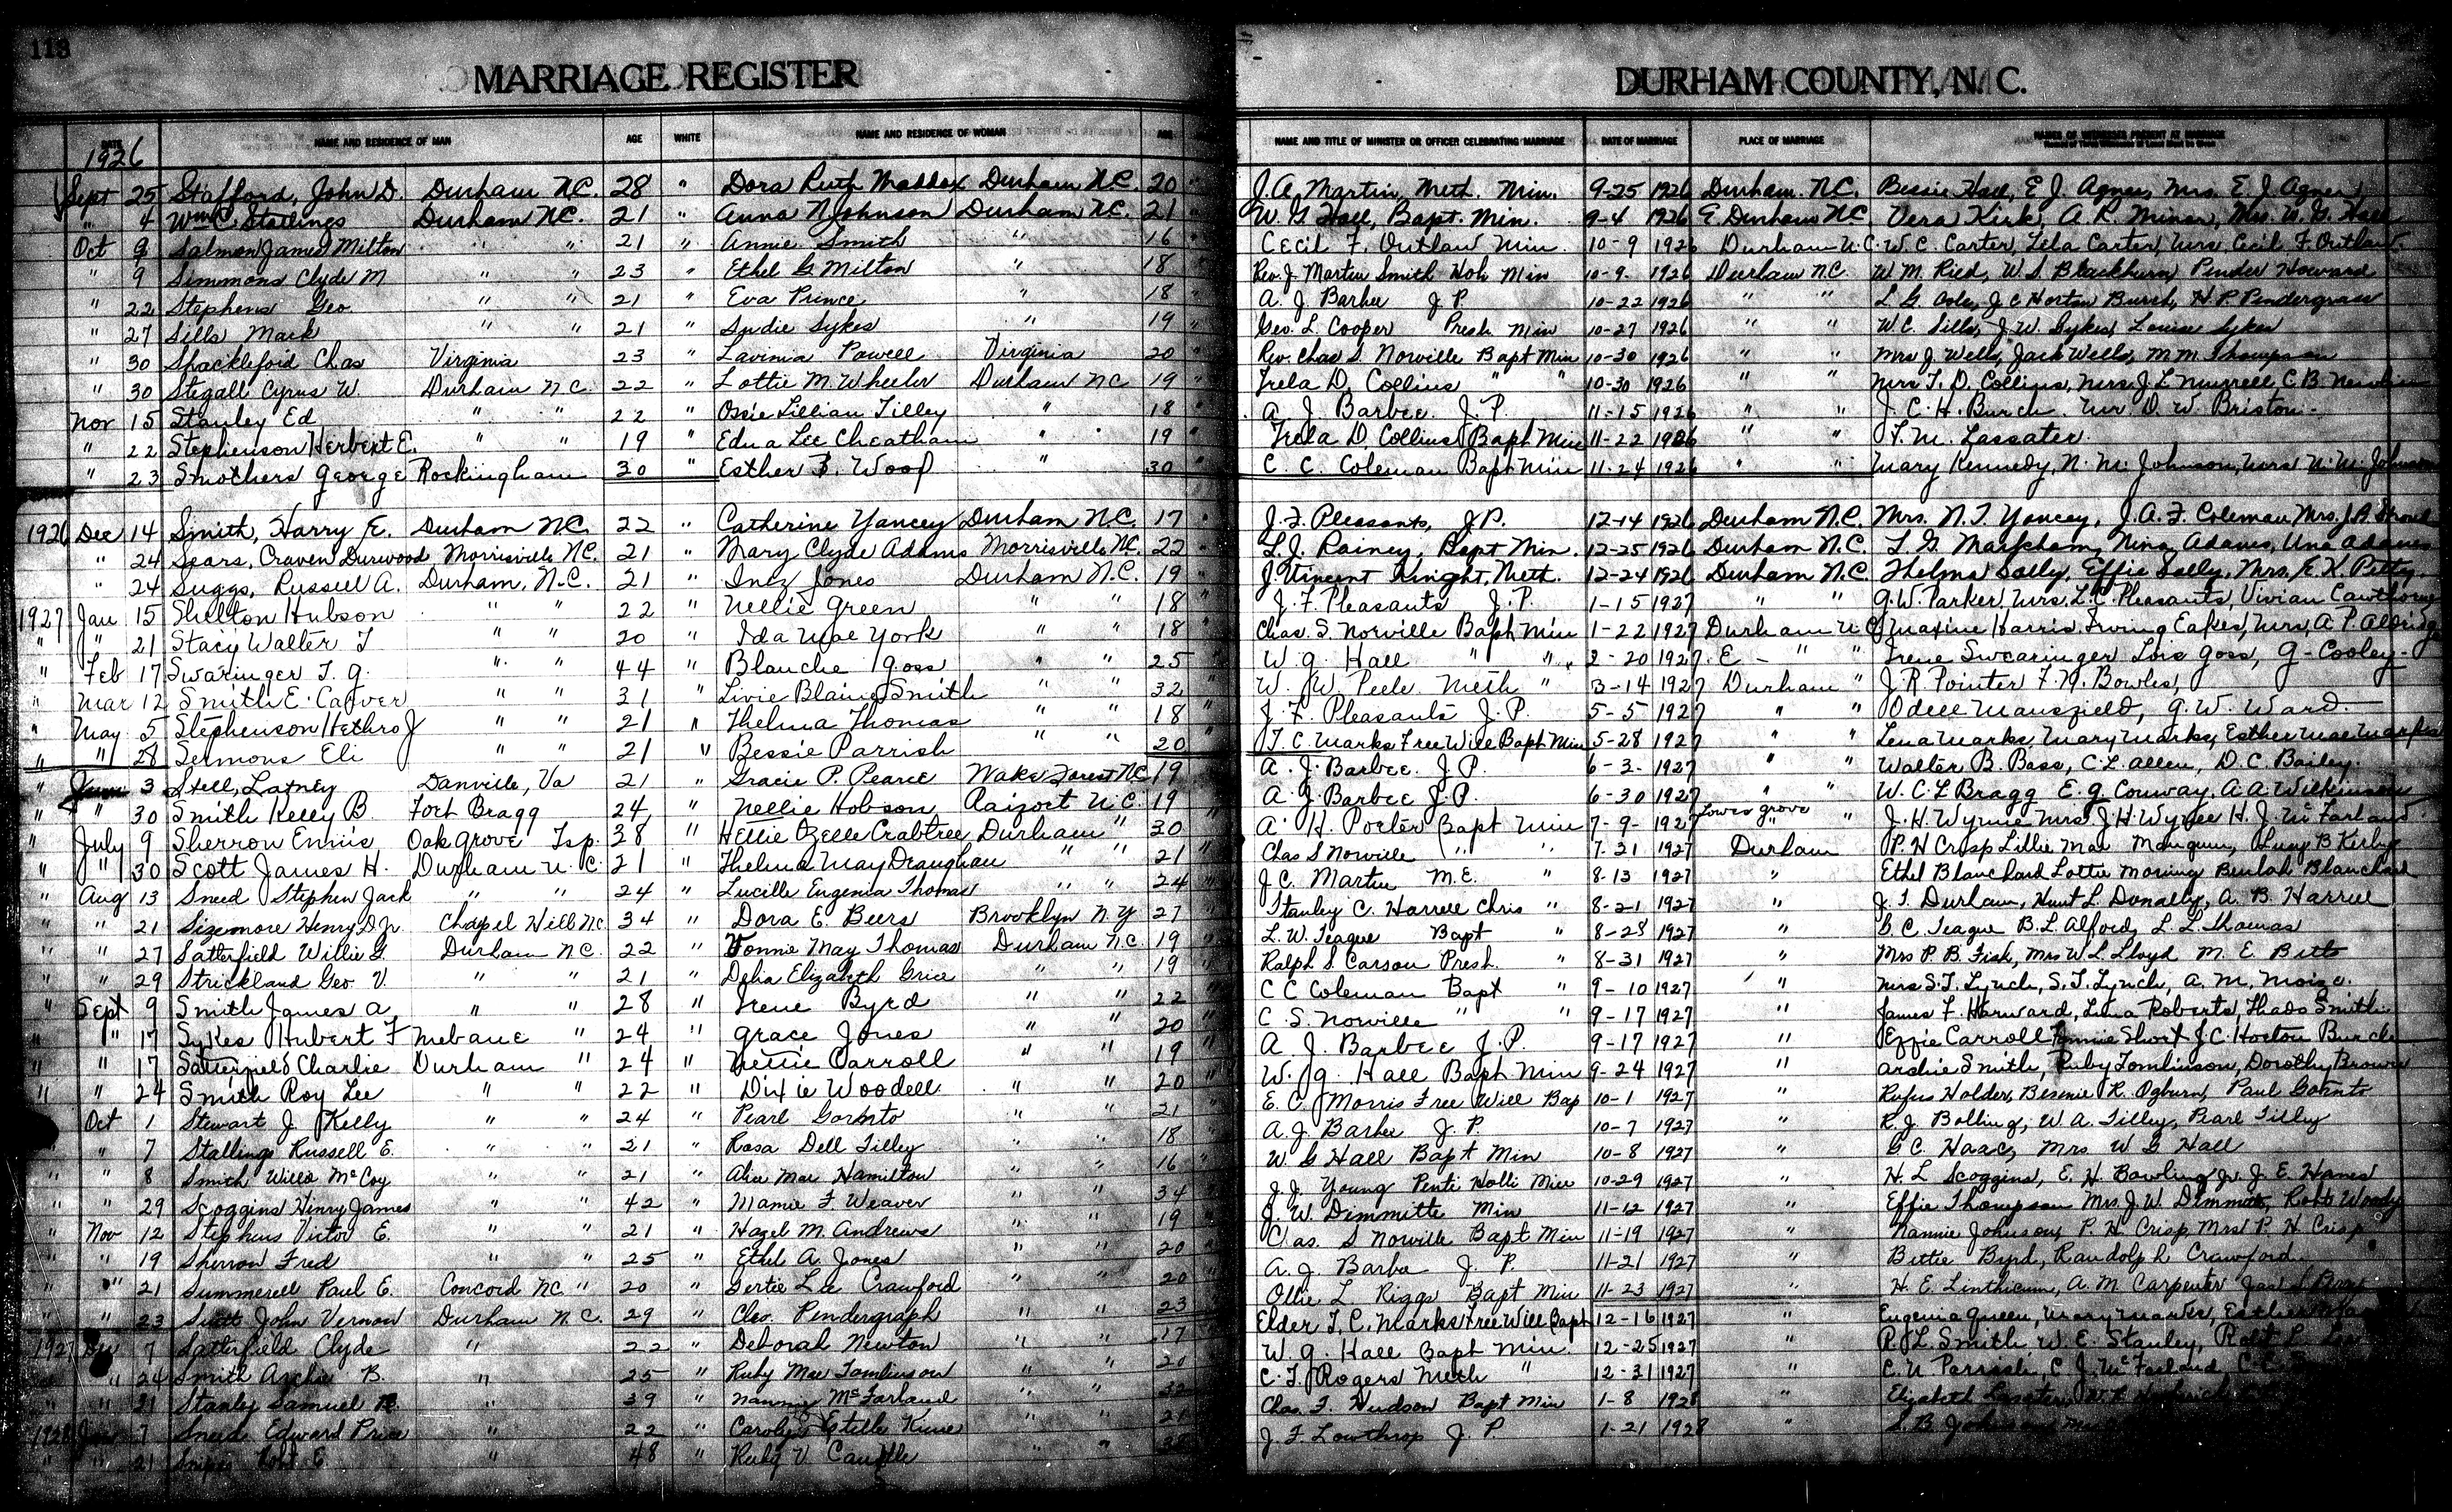 113
MARRIAGE REGISTER DURHAM COUNTY, N. C.
DATE NAME AND RESIDENCE OF MAN AGE WHITE NAME AND RESIDENCE OF WOMAN AGE NAME AND TITLE OF MINISTER OR OFFICER CELEBRATING MARRIAGE DATE OF MARRIAGE PLACE OF MARRIAGE NAMES OF WITNESSES PRESENT AT MARRIAGE
1926
Sept 25 Stafford, John D. Durham N.C. 28 " Dora Ruth Maddox Durham N.C. 20 " J. A. Martin, Meth. Min. 9-25 1926 Durham. N.C. Bessie Hall, E. J. Agner, Mrs. E. J. Agner
" 4 Wm C. Stallings Durham N.C. 21 " Anna N Johnson Durham N.C. 21 " W. G Hall, Bapt. Min. 9-4 1926 E. Durham N.C. Vera Kirk, A. R. Minor, Mrs. W. G. Hall
Oct 9 Salmon James Milton " " 21 " Annie Smith " 16 " Cecil F. Outlaw Min. 10-9 1926 Durham N.C. W. C. Carter, Lela Carter, Mrs Cecil F. Outlaw.
" 9 Simmons Clyde M " " 23 " Ethel G Milton " 18 " Rev. J. Martin Smith Min 10-9. 1926 Durham N.C. W M. Ried, W S. Blackburn, Pender Howard
" 22 Stephens Geo. " " 21 " Eva Prince " 18 " A. J. Barbee J P. 10-22 1926 " " L G. Cole, J C Horton Burch, H. P. Pendergrass
" 27 Sills Mack " " 21 " Sudie Sykes " 19 " Geo. L. Cooper Presb Min 10-27 1926 " " W C. Sills, J. W. Sykes, Louise Sykes
" 30 Shackleford Chas Virginia 23 " Lavinia Powell Virginia 20 " Rev. Chas S. Norville Bapt Min 10-30 1926 " " Mrs J. Wells, Jack Wells, M M. Thompson
" 30 Stegall Cyrus W. Durham N.C. 22 " Lottie M. Wheeler Durham N C 19 " Trela D. Collins " " 10-30 1926 " " Mrs T. D. Collins, Mrs. J. L Murrell, C. B.
Nov 15 Stanley Ed " " 22 " Ossie Lillian Tilley " 18 " A. J. Barbee. J. P. 11-15 1926 " " J. C. H. Burch. Mr D. W. Briston.
" 22 Stephenson Herbert E. " " 19 " Edna Lee Cheatham " " 19 " Trela D. Collins Bapt Min 11-22 1926 " " T. M. Lassater.
" 23 Smothers George Rockingham 30 " Esther Woof " 30 " C. C. Coleman Bapt Min 11-24 1926 " " Mary Kennedy, N. M. Johnson, Mrs N. M. Johnson
1926 Dec 14 Smith, Harry E. Durham N.C. 22 " Catherine Yancey Durham N.C. 17 " J. F. Pleasants, J.P. 12-14 1926 Durham N.C. Mrs. N. T. Yancey, J. A. F. Coleman, Mrs. J. B.
" 24 Sears, Craven Durwood Morrisville N.C. 21 " Mary Clyde Adams Morrisville N.C. 22 " L. J. Rainey, Bapt Min. 12-25 1926 Durham N.C. L G. Markham, Nina Adams, Una Adams
" 24 Suggs, Russell A. Durham, N.C. 21 " Inez Jones Durham N.C. 19 " J. Vincent Knight, Meth. 12-24 1926 Durham N.C. Thelma Solly, Effie Solly, Mrs. E. K. Petty
1927 Jan 15 Shelton Hubson " " 22 " Nellie Green " " 18 " J. F. Pleasants J. P. 1-15 1927 " " G. W. Parker, Mrs. L. C. Pleasants, Vivian Cawthorne
" " 21 Stacy Walter T " " 20 " Ida Mae York " " 18 " Chas. S. Norville Bapt Min 1-22 1927 Durham N C Maxine Harris, Irving Eakes, Mrs. A. P. Aldridge
" Feb 17 Swaringer T. G. " " 44 " Blanche Goss " " 25 " W. G. Hall " " 2-20 1927 E - " " Irene Swearinger Lois Goss, G- Cooley-
" Mar 12 Smith E. Carver " " 31 " Livie Blaine Smith " " 32 " W. W. Peele Meth " 3-14 1927 Durham " J. R. Pointer F. N. Bowles,
" May 5 Stephenson Hethro J " " 21 " Thelma Thomas " " 18 " J. F. Pleasants J. P. 5-5 1927 " " Odell Mansfield, G. W. Ward.
" " 28 Semons Eli " " 21 " Bessie Parrish " " 20 " T. C. Marks Free Will Bapt Min 5-28 1927 " " Lena Marks, Mary Marks, Esther Mae Marks
" June 3 Stell, Latney Danville, Va 21 " Gracie P. Pearce Wake Forest N.C. 19 A. J. Barbee. J P. 6-3- 1927 " Walter B. Bass, C. L. Allen, D. C. Bailey.
" " 30 Smith Kelly B. Fort Bragg 24 " Nellie Hobson N.C. 19 " A J Barbee J P. 6-30 1927 " " W. C. L Bragg E. G. Conway, A A Wilkinson
" July 9 Sherron Ennis Oak Grove Tsp. 38 " Hellie Ozelle Crabtree Durham " 30 A. H. Porter Bapt Min 7-9- 1927 Lowes grove " J. H. Wynne Mrs J H. Wynne H. J. McFarland.
" " 30 Scott James H. Durham N.C. 21 " Thelma May Draughan " " 21 " Chas S Norville " " 7-31 1927 Durham P. H Crisp Lillie Mae Mangum, Lucy B Kirby
" Aug 13 Sneed Stephen Jack " " 24 " Lucille Eugenia Thomas " " 24 " J. C. Martin M.E. " 8-13 1927 " Ethel Blanchard Lottie Moring Beulah Blanchard
" " 21 Sizemore Henry D Jr. Chapel Hill N.C. 34 " Dora E. Beers Brooklyn N.Y 27 " Stanley C. Harrell Chris " 8-21 1927 " J. T. Durham, Hunt L. Donally, A. B. Harrell
" " 27 Satterfield Willie G. Durham N.C. 22 " Vonnie May Thomas Durham N.C. 19 " L. W. Teague Bapt " 8-28 1927 " G C. Teague B. L. Alford, L. L. Thomas
" " 29 Strickland Geo. V. " " 21 " Delia Elizabeth Grice " " 19 " Ralph S. Carson Presb. " 8-31 1927 " Mrs P. B. Fish, Mrs W. L Lloyd M. E. Bitts
" Sept 9 Smith James A. " " 28 " Irene Byrd " " 22 " C C Coleman Bapt " 9-10 1927 " Mrs S. T. Lynch, S. T. Lynch, A. M. Moize.
" " 17 Sykes Hubert F Mebane " 24 " Grace Jones " " 20 " C. S. Norville " " 9-17 1927 " James F. Harward, Lena Roberts, Thads Smith
" " 17 Satterfield Charlie Durham " 24 " Nettie Carroll " " 19 " A. J. Barbee J. P. 9-17 1927 " Effie Carroll Fannie Short J. C. Horton Burch
" " 24 Smith Roy Lee " " 22 " Dixie Woodell " " 20 " W. G. Hall Bapt Min 9-24 1927 " Archie Smith, Ruby Tomlinson, Dorothy Brown
Oct 1 Stewart J. Kelly " " 24 " Pearl Gornto " " 21 " E. C. Morris Free Will Bap 10-1 1927 " Rufus Holder, R. Ogburn, Paul Gornto
" " 7 Stallings Russell E. " " 21 " Rosa Dell Tilley " " 18 " A. J. Barbee J. P. 10-7 1927 " R. J. Bolling, W A. Tilley, Pearl Tilley
" " 8 Smith Willis McCoy " " 21 " Alice Mae Hamilton " " 16 " W. G Hall Bapt Min 10-8 1927 " G C. Haac, Mrs W G Hall
" " 29 Scoggins Henry James " " 42 " Mamie F Weaver " " 34 " J. J. Young Pente Holli Min 10-29 1927 " H. L Scoggins, E. H. Bowling Jr. J. E. Hames
" Nov 12 Stephens Victor E. " " 21 " Hazel M. Andrews " " 19 " J. W. Dimmitte Min 11-12 1927 " Effie Thompson Mrs. J. W. Dimmitte, Robt Woody
" " 19 Sherron Fred " " 25 " Ethel A Jones " " 20 " Chas. S Norville Bapt Min 11-19 1927 " Nannie Johnson, P. H. Crisp, Mrs P. H Crisp
" " 21 Summerell Paul E. Concord N.C. " 20 " Gertie Lee Crawford " " 20 " A. J. Barbee J P. 11-21 1927 " Bettie Byrd, Randolph Crawford.
" " 23 Scott John Vernon Durham N.C. 29 " Cleo. Pendergraph " " 23 " Ollie L Riggs Bapt Min 11-23 1927 " H. E. Linthicum, A. M. Carpenter
1927 Dec 7 Satterfield Clyde " 22 " Deborah Newton " " 17 " Elder T. C. Marks Free Will Bapt 12-16 1927 " Eugenia Queen, Mary Marks, Esther
" " 24 Smith Archie B. " 25 " Ruby Mae Tomlinson " " 20 W. G. Hall Bapt Min. 12-25 1927 " R. L. Smith W. E. Stanley, Robt L.
" " 31 Stanley Samuel R. " 39 " Nannie McFarland " " 32 C. T. Rogers Meth " 12-31 1927 " C. N Parrish, C J. McFarland
1928 Jan 7 Sneed Edward Price " 22 " Carolyn Estelle " " 21 Chas. F. Hudson Bapt Min 1-8 1928 " Elizabeth
" " 21 Snipes Robt E " 48 " Ruby V. Caudle " " J. F. Lowthrop J. P. 1-21 1928 " S. B.